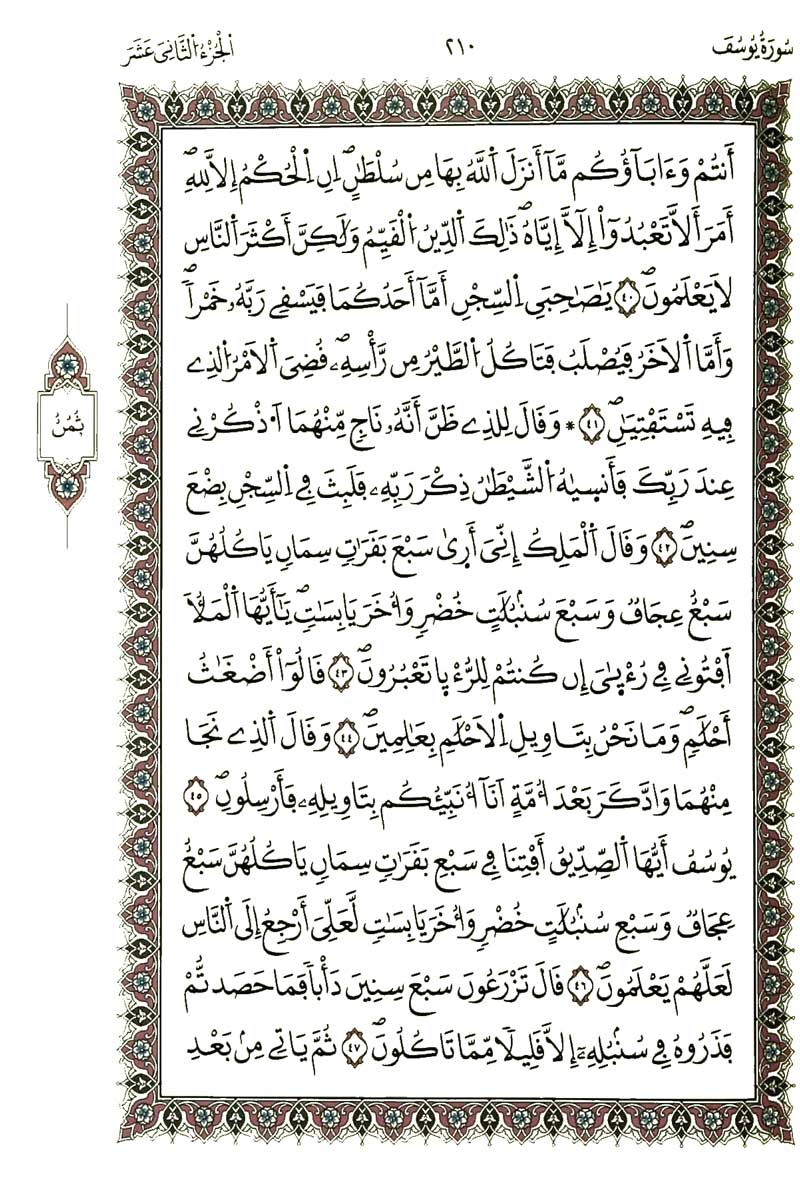 سُورَةُ يُوسُفَ
٢١٠
اَلْجُزْءُ الثَّانِيَ عَشَرَ
أَنتُمْ وَءَابَآؤُكُم مَّآ أَنزَلَ اَللَّهُ بِهَا مِن سُلْطَٰنٍۖ اِنِ اِلْحُكْمُ إِلَّا لِلهِۖ
أَمَرَ أَلَّا تَعْبُدُوٓاْ إِلَّآ إِيَّاهُۖ ذَٰلِكَ اَلدِّينُ اُلْقَيِّمُ وَلَٰكِنَّ أَكْثَرَ اَلنَّاسِ
لَا يَعْلَمُونَۖ ٤٠ يَٰصَٰحِبَيِ اِلسِّجْنِ أَمَّآ أَحَدُكُمَا فَيَسْقِے رَبَّهُۥ خَمْراٗۖ
وَأَمَّا اَلَاخَرُ فَيُصْلَبُ فَتَاكُلُ اُلطَّيْرُ مِن رَّأْسِهِۦۖ قُضِيَ اَلَامْرُ اُلذِے
فِيهِ تَسْتَفْتِيَٰنِۖ ٤١ ۞ وَقَالَ لِلذِے ظَنَّ أَنَّهُۥ نَاجٖ مِّنْهُمَا اَ۟ذْكُرْنِے
عِندَ رَبِّكَ فَأَنسۭيٰهُ اُلشَّيْطَٰنُ ذِكْرَ رَبِّهِۦ فَلَبِثَ فِے اِلسِّجْنِ بِضْعَ
سِنِينَۖ ٤٢ وَقَالَ اَلْمَلِكُ إِنِّيَ أَر۪يٰ سَبْعَ بَقَرَٰتٖ سِمَانٖ يَاكُلُهُنَّ
سَبْعٌ عِجَافٞ وَسَبْعَ سُنۢبُلَٰتٍ خُضْرٖ وَأُخَرَ يَابِسَٰتٖۖ يَٰٓأَيُّهَا اَلْمَلَأُ
اَفْتُونِے فِے رُءْيٰ۪يَ إِن كُنتُمْ لِلرُّءْي۪ا تَعْبُرُونَۖ ٤٣ قَالُوٓاْ أَضْغَٰثُ
أَحْلَٰمٖۖ وَمَا نَحْنُ بِتَاوِيلِ اِلَاحْلَٰمِ بِعَٰلِمِينَۖ ٤٤ وَقَالَ اَلذِے نَجَا
مِنْهُمَا وَادَّكَرَ بَعْدَ أُمَّةٍ اَنَآ أُنَبِّئُكُم بِتَاوِيلِهِۦ فَأَرْسِلُونِۖ ٤٥
يُوسُفُ أَيُّهَا اَلصِّدِّيقُ أَفْتِنَا فِے سَبْعِ بَقَرَٰتٖ سِمَانٖ يَاكُلُهُنَّ سَبْعٌ
عِجَافٞ وَسَبْعِ سُنۢبُلَٰتٍ خُضْرٖ وَأُخَرَ يَابِسَٰتٖ لَّعَلِّيَ أَرْجِعُ إِلَى اَلنَّاسِ
لَعَلَّهُمْ يَعْلَمُونَۖ ٤٦ قَالَ تَزْرَعُونَ سَبْعَ سِنِينَ دَأْباٗ فَمَا حَصَدتُّمْ
فَذَرُوهُ فِے سُنۢبُلِهِۦٓ إِلَّا قَلِيلاٗ مِّمَّا تَاكُلُونَۖ ٤٧ ثُمَّ يَاتِے مِنۢ بَعْدِ
ثُمُنٌ